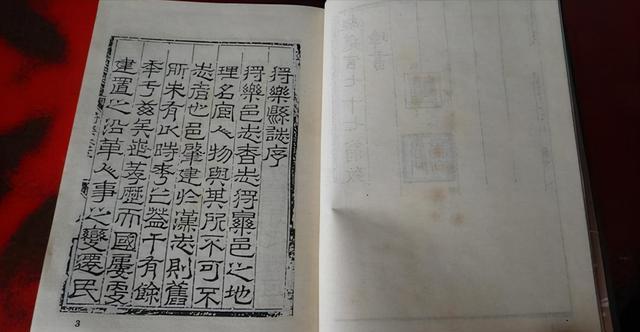 將樂縣誌序
將樂邑志者志將樂邑之地
理名宦人物與其所不可不
志者也邑肇建於漢志則舊
所未有以時考之蓋千有餘
年于茲矣歷而國屢更
建置之沿革人事之變遷民
3